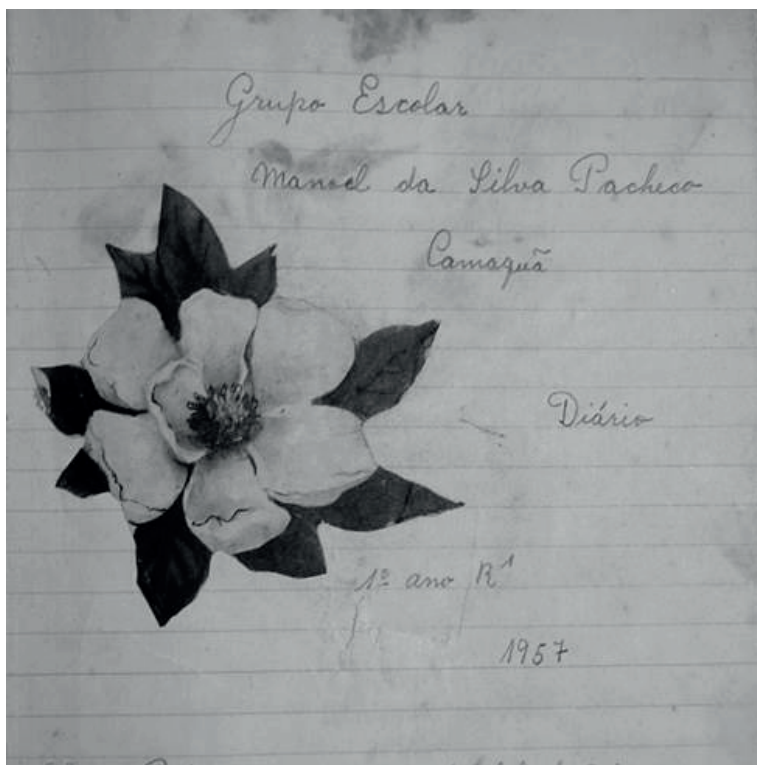 Grupo Escolar
Manoel da Silva Pacheco
Camaquã
Diário
1º ano R¹
1957